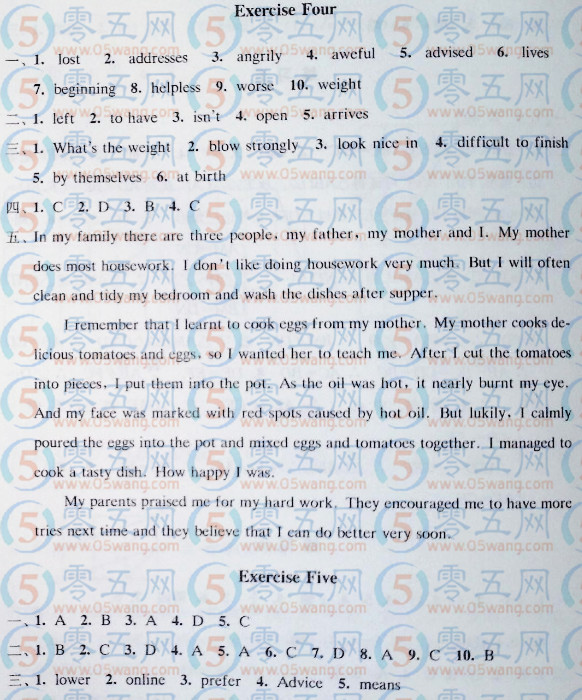 Exercise Four
一、1. lost 2. addresses 3. angrily 4. aweful 5. advised 6. lives
7. beginning 8. helpless 9. worse 10. weight
二、1. left 2. to have 3. isn't 4. open 5. arrives
三、1. What's the weight 2. blow strongly 3. look nice in 4. difficult to finish
5. by themselves 6. at birth
四、1. C 2. D 3. B 4. C
五、In my family there are three people, my father, my mother and I. My mother
does most housework. I don't like doing housework very much. But I will often
clean and tidy my bedroom and wash the dishes after supper.
I remember that I learnt to cook eggs from my mother. My mother cooks de-
licious tomatoes and eggs, so I wanted her to teach me. After I cut the tomatoes
into pieces, I put them into the pot. As the oil was hot, it nearly burnt my eye.
And my face was marked with red spots caused by hot oil. But lukily, I calmly
poured the eggs into the pot and mixed eggs and tomatoes together. I managed to
cook a tasty dish. How happy I was.
My parents praised me for my hard work. They encouraged me to have more
tries next time and they believe that I can do better very soon.
Exercise Five
一、1. A 2. B 3. A 4. D 5. C
二、1. B 2. C 3. D 4. A 5. A 6. C 7. D 8. A 9. C 10. B
三、1. lower 2. online 3. prefer 4. Advice 5. means
零五网
www.05wang.com